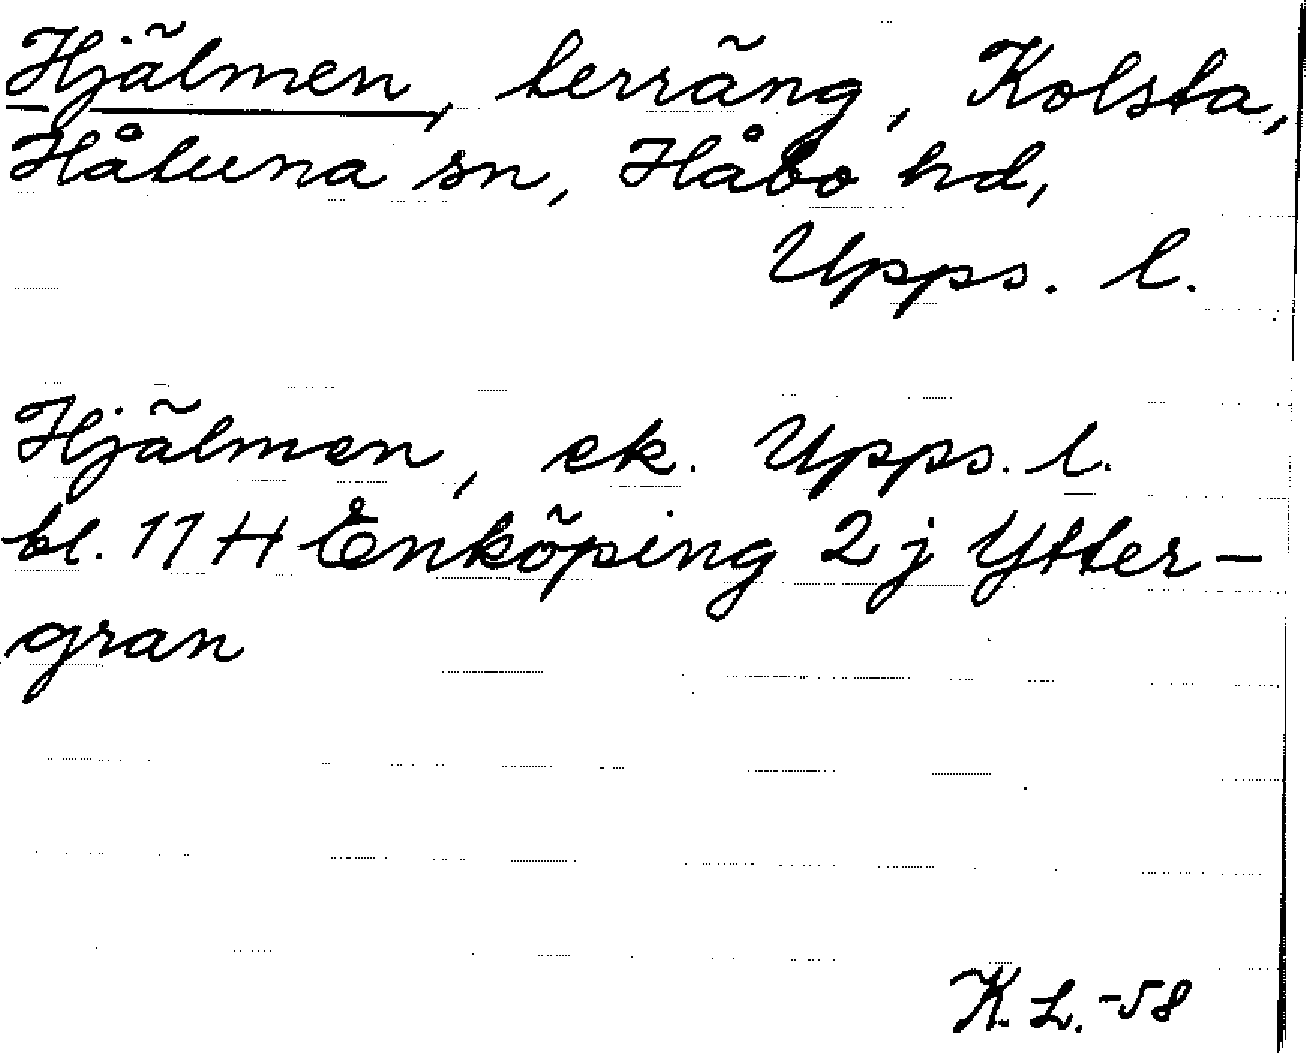 Hjälmen, terräng, Kolsta,
Håtuna sn, Håbo hd,
Upps. l.
Hjälmen, ek. Upps. l.
bl. 11 H Enköping 2 j Ytter-
gran
K. L. -58